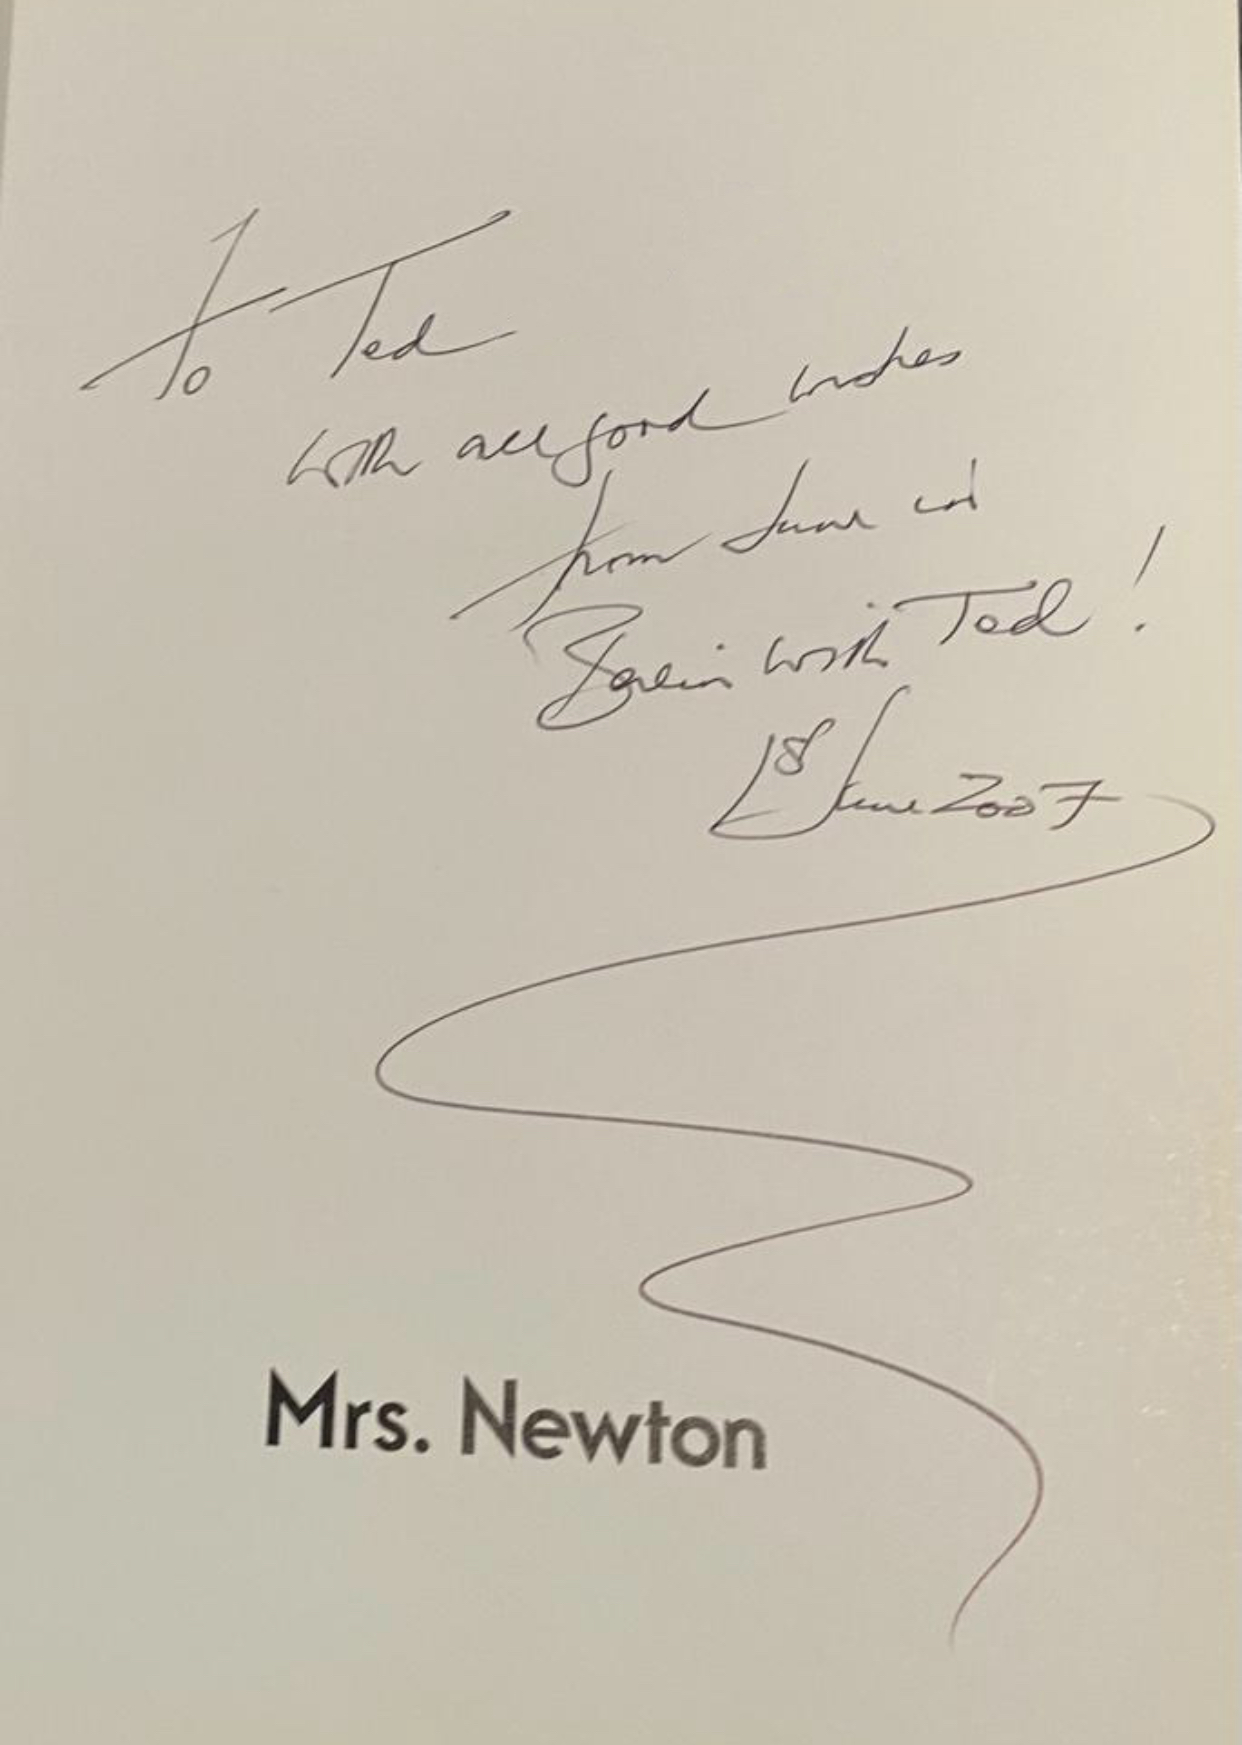 To Ted
with all good wishes
from June in
Berlin with Ted!
18 June 2007
Mrs. Newton